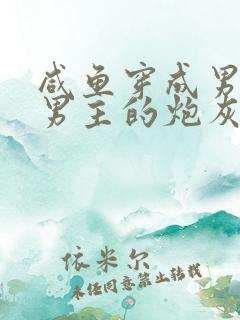 咸鱼穿成男
男主的炮灰
依米尔
未经同意禁止转载